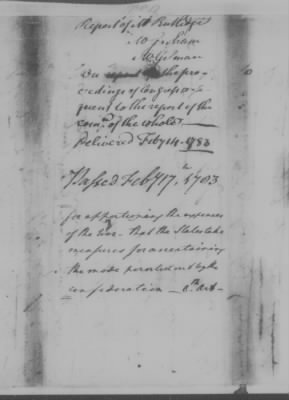 Report of Mr Rutledge
Mr Gorham
Mr Gilman
On the pro-
ceedings of Congress
quent to the report of the
com.e of the whole
Delivered Feby 14. 1783
Passed Feby 17.th 1783
for apportioning the expences
of the War - that the States take
measures for ascertaining
the mode pointed out by the
confederation - 8th Art -